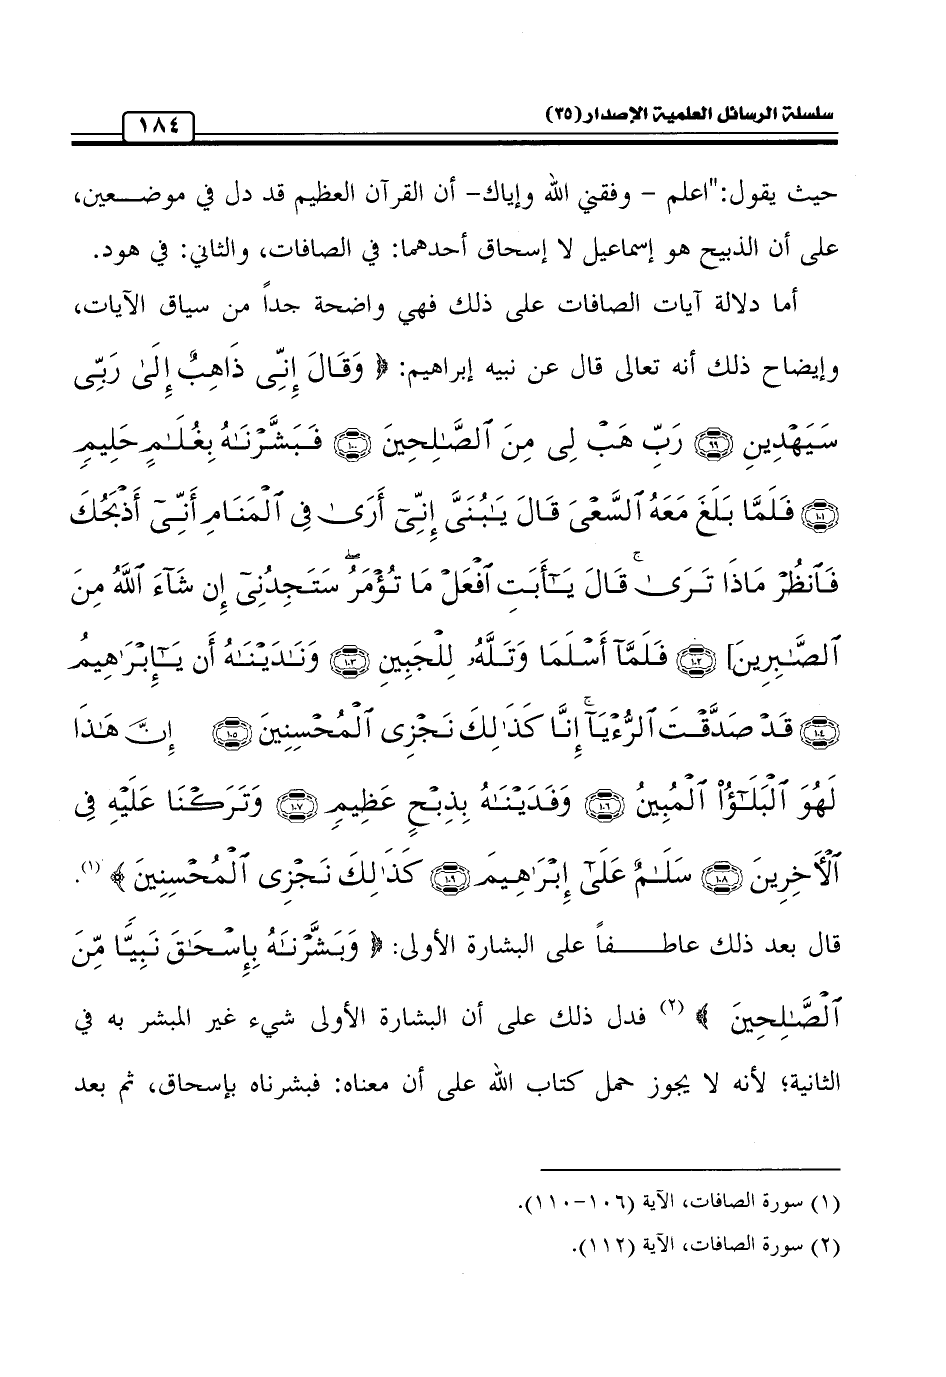 سلسلة الرسائل العلمية الإصدار(٣٥)
١٨٤
حيث يقول:"اعلم – وفقني الله وإياك– أن القرآن العظيم قد دل في موضعين،
على أن الذبيح هو إسماعيل لا إسحاق أحدهما: في الصافات، والثاني: في هود.
أما دلالة آيات الصافات على ذلك فهي واضحة جداً من سياق الآيات،
وإيضاح ذلك أنه تعالى قال عن نبيه إبراهيم: ﴿ وَقَالَ إِنِّى ذَاهِبٌ إِلَىٰ رَبِّى
سَيَهْدِينِ ٩٩ رَبِّ هَبْ لِى مِنَ ٱلصَّٰلِحِينَ ١٠٠ فَبَشَّرْنَٰهُ بِغُلَٰمٍ حَلِيمٍ
١٠١ فَلَمَّا بَلَغَ مَعَهُ ٱلسَّعْىَ قَالَ يَٰبُنَىَّ إِنِّىٓ أَرَىٰ فِى ٱلْمَنَامِ أَنِّىٓ أَذْبَحُكَ
فَٱنظُرْ مَاذَا تَرَىٰ ۚ قَالَ يَٰٓأَبَتِ ٱفْعَلْ مَا تُؤْمَرُ ۖ سَتَجِدُنِىٓ إِن شَآءَ ٱللَّهُ مِنَ
ٱلصَّٰبِرِينَ] ١٠٢ فَلَمَّآ أَسْلَمَا وَتَلَّهُۥ لِلْجَبِينِ ١٠٣ وَنَٰدَيْنَٰهُ أَن يَٰٓإِبْرَٰهِيمُ
١٠٤ قَدْ صَدَّقْتَ ٱلرُّءْيَآ ۚ إِنَّا كَذَٰلِكَ نَجْزِى ٱلْمُحْسِنِينَ ١٠٥ إِنَّ هَٰذَا
لَهُوَ ٱلْبَلَٰٓؤُا۟ ٱلْمُبِينُ ١٠٦ وَفَدَيْنَٰهُ بِذِبْحٍ عَظِيمٍ ١٠٧ وَتَرَكْنَا عَلَيْهِ فِى
ٱلْأَخِرِينَ ١٠٨ سَلَٰمٌ عَلَىٰٓ إِبْرَٰهِيمَ ١٠٩ كَذَٰلِكَ نَجْزِى ٱلْمُحْسِنِينَ ﴾ (١).
قال بعد ذلك عاطفاً على البشارة الأولى: ﴿ وَبَشَّرْنَٰهُ بِإِسْحَٰقَ نَبِيًّا مِّنَ
ٱلصَّٰلِحِينَ ﴾ (٢) فدل ذلك على أن البشارة الأولى شيء غير المبشر به في
الثانية؛ لأنه لا يجوز حمل كتاب الله على أن معناه: فبشرناه بإسحاق، ثم بعد
(١) سورة الصافات، الآية (١٠٦–١١٠).
(٢) سورة الصافات، الآية (١١٢).